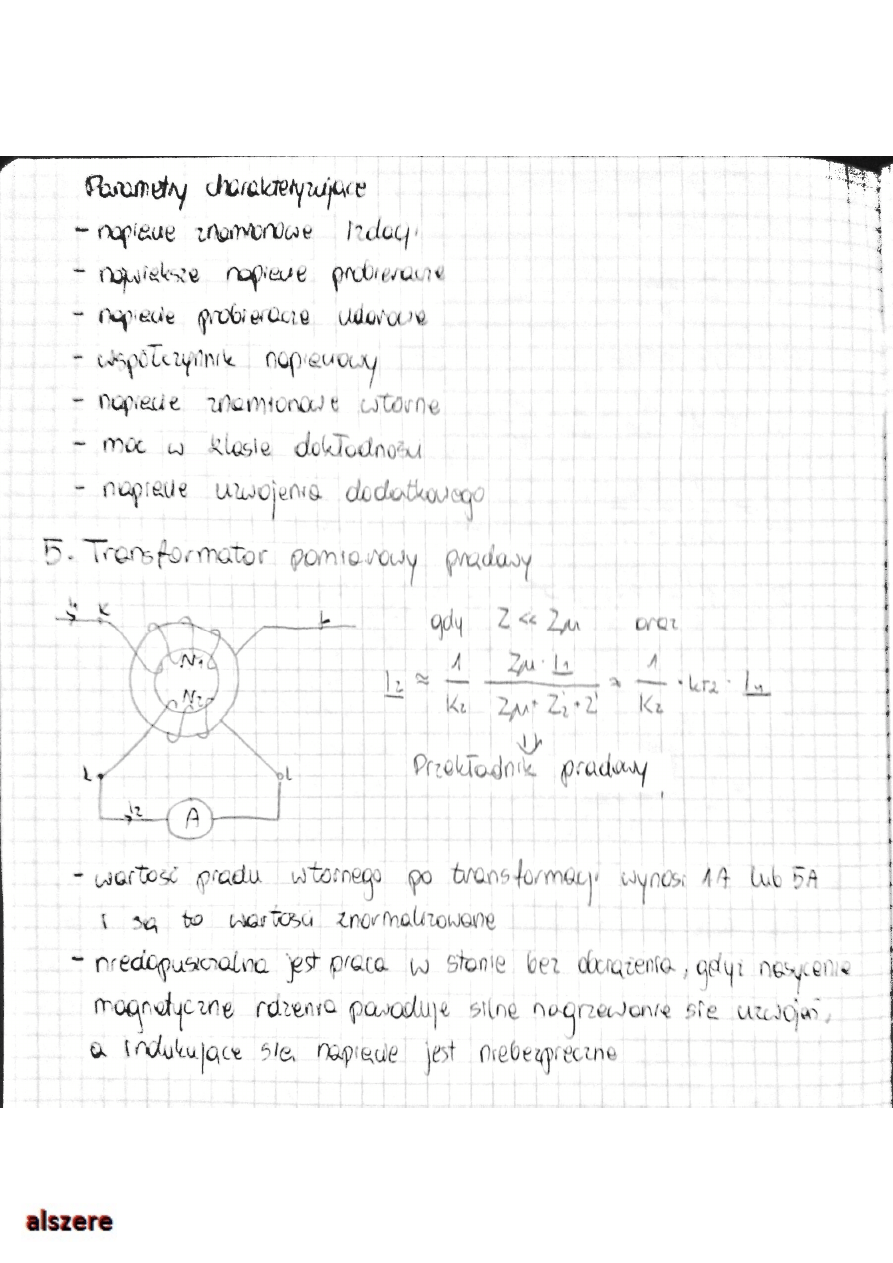 Parametry charakteryzujące
- napięcie znamionowe izolacji
- największe napięcie probiercze
- napięcie probiercze udarowe
- współczynnik napięciowy
- napięcie znamionowe wtórne
- moc w klasie dokładności
- napięcie uzwojenia dodatkowego
5. Transformator pomiarowy prądowy
I1 K L
N1
N2
gdy Z << Zμ oraz
I2 ≈ 1/Kz · Zμ · I1 / (Zμ + Z2' + Z') ≈ 1/Kz · I1
⇓
Przekładnik prądowy
l
I2 A
- wartość prądu wtórnego po transformacji wynosi 1A lub 5A
i są to wartości znormalizowane
- niedopuszczalna jest praca w stanie bez obciążenia, gdyż nasycenie
magnetyczne rdzenia powoduje silne nagrzewanie się uzwojeń,
a indukujące się napięcie jest niebezpieczne
alszere